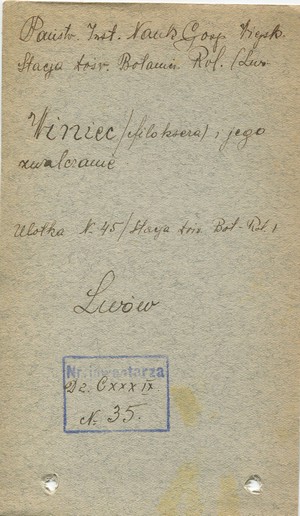 Państw. Inst. Nauk. Gosp. Wiejsk.
Stacja Dośw. Botanin. Rol. (Lwo.
Winiec (filoksera) i jego
zwalczanie
Ulotka N. 45 / Stacja Dośw. Bot.-Rol. /
Lwów
Nr. inwentarza
Dz. CXXXIX
N. 35.